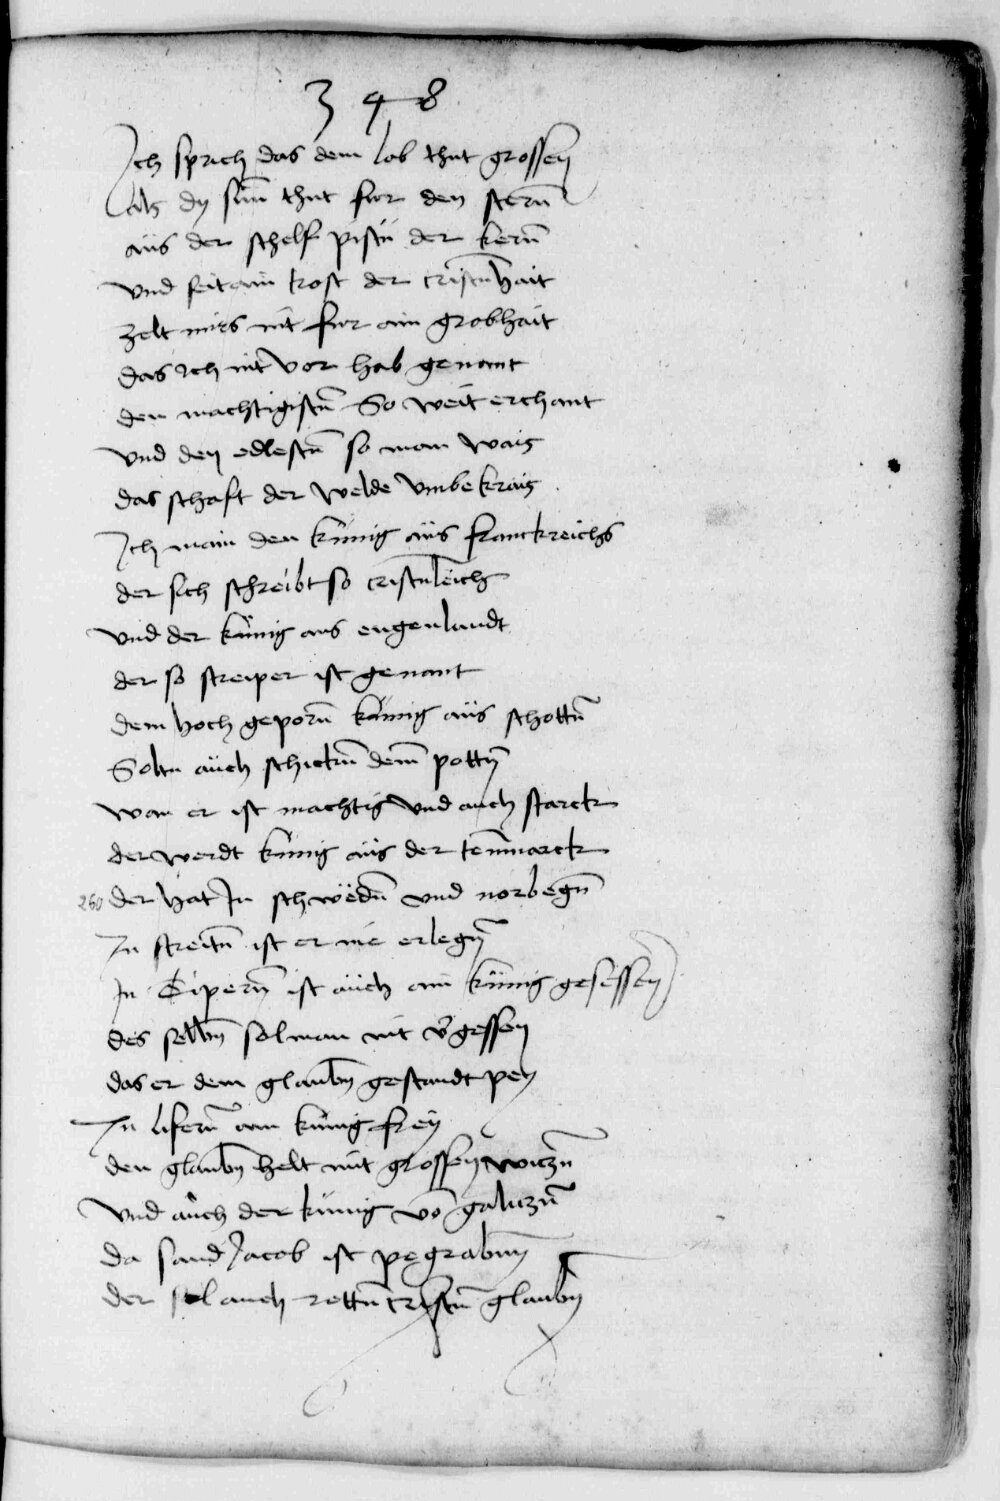 348
Ich sprich das dem lob thut grossen
als dy sun̄ thut fur den stern̄
aüs der schelf pistu der kern̄
vnd seit ain trost der cristn̄hait
zelt mirs nit fur ain grobhait
das ich nit vor hab genant
den machtigistn̄ So weit erchant
vnd den edlestn̄ so man wais
das schaft der welde vmbekrais
Ich main den künig aüs franckreichs
der sich schreibt so cristnleich
vnd der künig aus engenlandt
der so streiper ist genant
dem hoch geporn̄ künig aüs schottn̄
Soltu aüch schickn̄ dein̄ pottn̄
wan er ist machtig vnd auch starck
der werdt künig aüs der tenmarck
260 der hat In schwëdn̄ vnd norbegn̄
In streitn̄ ist er nie erlegn̄
In Cipern̄ ist aüch ain künig gesessen
des selbn̄ sol man nit v̄gessen
das er dem glaubn̄ gestandt pey
In lifern̄ ain künig frey
den glaubn̄ helt mit grossen wiczn̄
vnd aüch der künig vō galiczn̄
da sand Jacob ist pegrabn̄
der sol auch rettn̄ cristn̄ glaubn̄